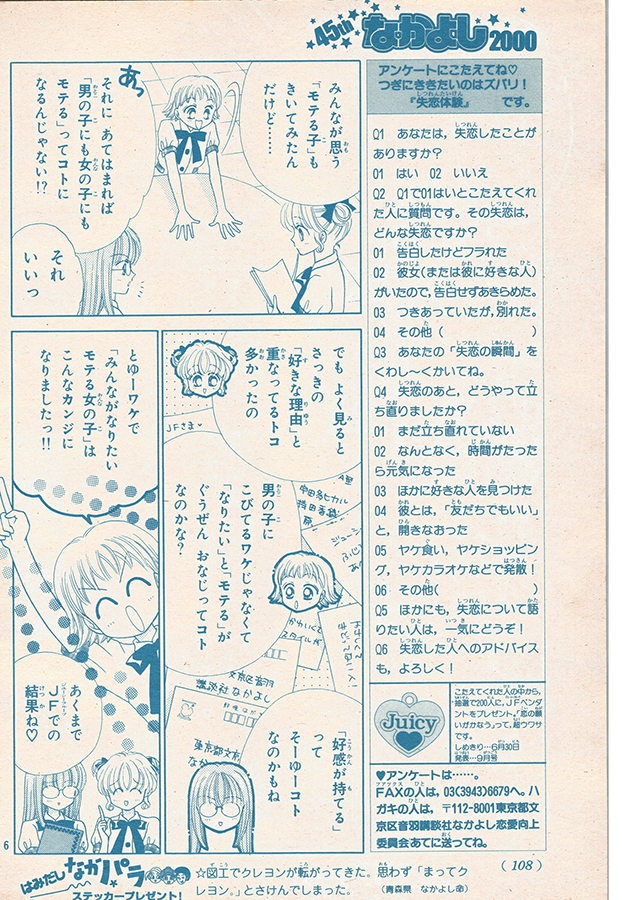 45th なかよし 2000
みんなが思う
「モテる子」も
きいてみたん
だけど……
あぅ
それに あてはまれば
「男の子にも女の子にも
モテる」ってコトに
なるんじゃない!?
それ
いいっ
でも よく見ると
さっきの
「好きな理由」と
重なってるトコ
多かったの
JFさま
男の子に
こびてるワケじゃなくて
「なりたい」と「モテる」が
ぐうぜん おなじってコト
なのかな?
文京区音羽
講談社なかよし
東京都文京
なか
「好感が持てる」
って
そーゆーコト
なのかもね
とゆーワケで
「みんながなりたい
モテる女の子」は
こんなカンジに
なりましたっ!!
あくまで
JFでの
結果ね♡
アンケートにこたえてね♡
つぎにききたいのはズバリ!
『失恋体験』 です。
Q1 あなたは,失恋したことが
ありますか?
01 はい 02 いいえ
Q2 Q1で01はいとこたえてくれ
た人に質問です。その失恋は,
どんな失恋ですか?
01 告白したけどフラれた
02 彼女(または彼に好きな人)
がいたので,告白せずあきらめた。
03 つきあっていたが,別れた。
04 その他( )
Q3 あなたの「失恋の瞬間」を
くわし〜くかいてね。
Q4 失恋のあと,どうやって立
ち直りましたか?
01 まだ立ち直れていない
02 なんとなく,時間がたった
ら元気になった
03 ほかに好きな人を見つけた
04 彼とは,「友だちでもいい」
と,開きなおった
05 ヤケ食い,ヤケショッピン
グ,ヤケカラオケなどで発散!
06 その他( )
Q5 ほかにも,失恋について語
りたい人は,一気にどうぞ!
Q6 失恋した人へのアドバイス
も,よろしく!
Juicy
こたえてくれた人の中から,
抽選で200人に,JFペンダ
ントをプレゼント。「恋の願
いがかなう」って,超ウワサ
です。
しめきり…6月30日
発表…9月号
♥アンケートは……。
FAXの人は,03(3943)6679へ。ハ
ガキの人は,〒112-8001東京都文
京区音羽講談社なかよし恋愛向上
委員会あてに送ってね。
(108)
6
はみだし なかパラ
ステッカープレゼント!
☆図工でクレヨンが転がってきた。思わず「まってク
レヨン。」とさけんでしまった。 (青森県 なかよし命)